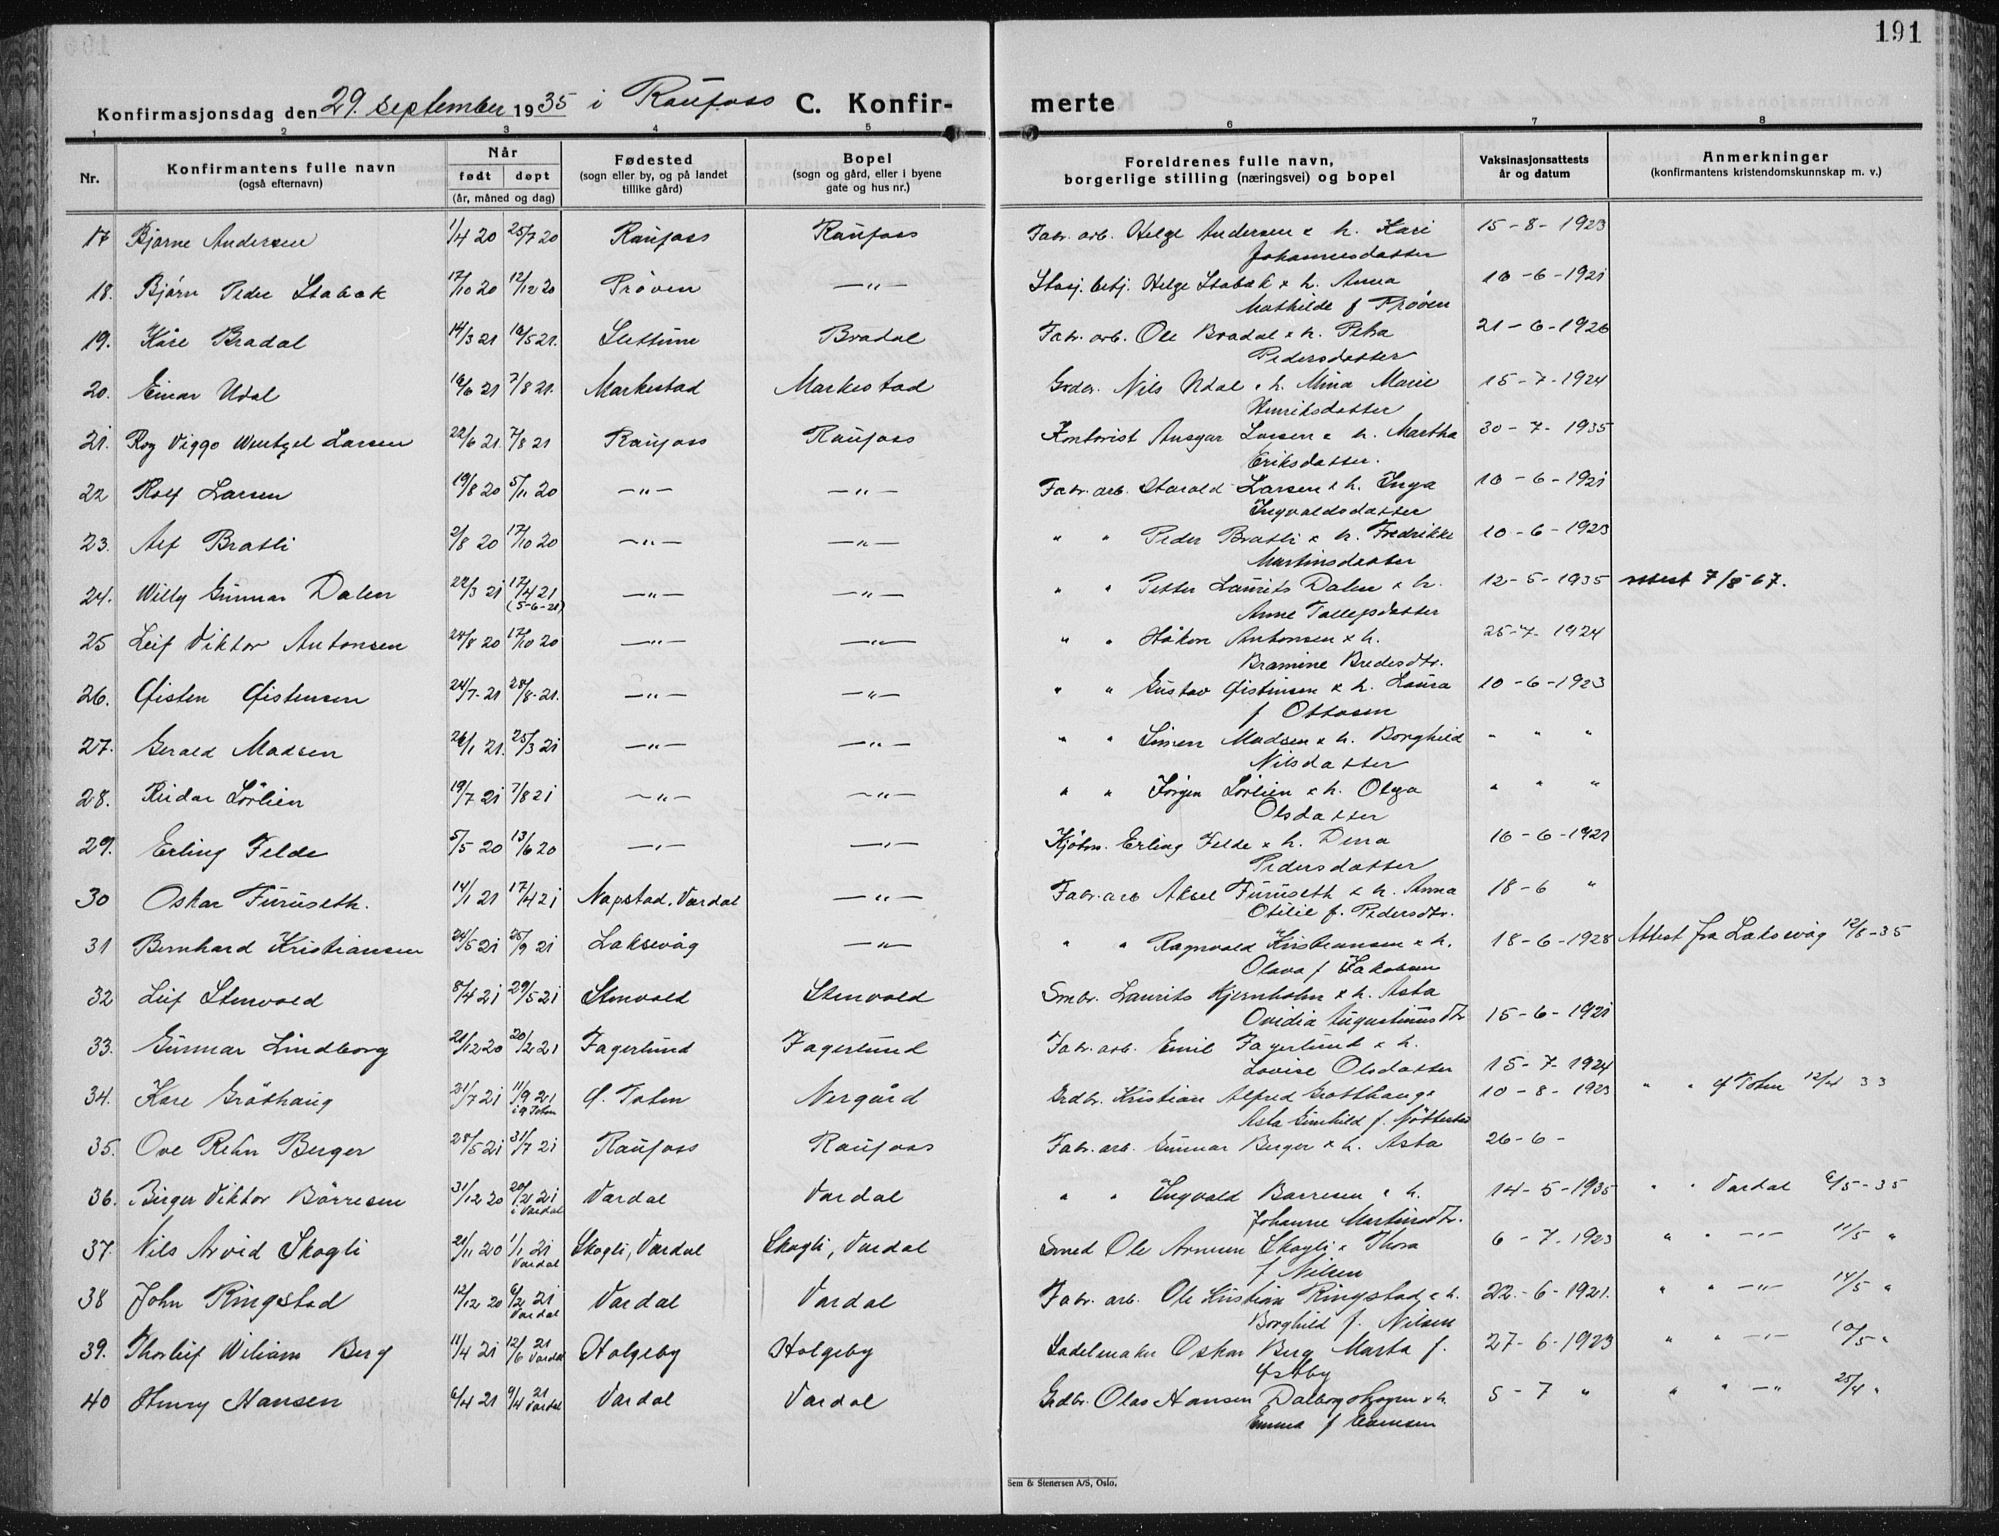 191
Konfirmasjonsdag den 29. september 1935 i Raufoss C. Konfir- merte
1 2 3 4 5 6 7 8
Nr. Konfirmantens fulle navn (også efternavn) Når født døpt (år, måned og dag) Fødested (sogn eller by, og på landet tillike gård) Bopel (sogn og gård, eller i byene gate og hus nr.) Foreldrenes fulle navn, borgerlige stilling (næringsvei) og bopel Vaksinasjonsattests år og datum Anmerkninger (konfirmantens kristendomskunnskap m. v.)
17 Bjarne Andersen 1/4 20 25/7 20 Raufoss Raufoss Fabr. arb. Helge Andersen & h. Kari 15-8-1923
Johannesdatter
18. Bjørn Peder Stabæk 17/10 20 12/12 20 Prøven —"— Stasj. betj. Helge Stabæk & h. Anna 10-6-1921
Mathilde f Prøven
19. Kåre Bradal 14/3 21 16/5 21. Slettum Bradal Fabr. arb. Ole Bradal & h. Petra 21-6-1926
Pedersdatter
20. Einar Udal 16/6 21 7/8 21. Markestad Markestad Grdbr. Nils Udal & h. Mina Marie 15-7-1924
Henriksdatter
21. Roy Viggo Wentzel Larsen 22/6 21. 7/8 21 Raufoss Raufoss Kontorist Ansgar Larsen & h. Martha 30-7-1935
Eriksdatter.
22 Rolf Larsen 19/8 20 5/11 20 —"— —"— Fabr. arb. Harald Larsen & h. Inga 10-6-1921
Ingvaldsdatter
23. Alf Bratli 2/8 20 17/10 20 —"— —"— " " Peder Bratli & h. Fredrikke 10-6-1923
Martinsdatter
24. Willy Gunnar Dalen 22/3 21 17/4 21 (5-6-21) —"— —"— " " Petter Laurits Dalen & h. 12-5-1935 attest 7/8-67.
Anne Tollefsdatter
25 Leif Viktor Antonsen 28/8 20 17/10 20 —"— —"— " " Håkon Antonsen & h. 25-7-1924
Bramine Bredesdtr.
26. Øisten Øistensen 24/7-21 28/8-21. —"— —"— " " Gustav Øistensen & h. Laura 10-6-1923
f Ottosen
27. Gerald Madsen 26/1 21. 25/3 21 —"— —"— " " Simen Madsen & h. Borghild " " "
Nilsdatter
28. Reidar Sørlien 19/7 21 7/8 21 —"— —"— " " Jørgen Sørlien & h. Olga " " "
Olsdatter
29. Erling Felde 5/5 20 13/6 20 —"— —"— Kjøbm. Erling Felde & h. Dina 10-6-1921
Pedersdatter
30 Oskar Furuseth. 14/1 21 17/4 21 Napstad, Vardal —"— Fabr. arb Aksel Furuseth & h. Anna 18-6 "
Otilie f. Pedersdtr.
31 Bernhard Kristiansen 24/5 21 25/9 21 Laksevåg —"— " " Ragnvald Kristiansen & h. 18-6-1928 Attest fra Laksevåg 12/8-35
Olava f Jakobsen
32 Leif Stenvold 8/4 21 29/5 21 Stenvold Stenvold Smbr. Laurits Kjernholm & h. Asta
Ovidia Augustinusdtr 15-6-1921
33. Gunnar Lindborg 21/12 20 20/2 21 Fagerlund Fagerlund Fabr. arb. Emil Fagerlund & h.
Lovise Olsdatter 15-7-1924
34. Kåre Gråthaug 21/7 21 11/9 21 i Ø. Toten Ø. Toten Nergård Grdbr. Kristian Alfred Grøtthaug & 10-8-1923 " " Ø Toten 12/4 33
Asta
35. Ove Rehn Berger 28/5 21 31/7 21 Raufoss Raufoss Fabr. arb. Gunnar Berger & h. Asta 26-6-
36. Birger Viktor Børresen 31/12 20 20/2 21 i Vardal Vardal Vardal " " Ingvald Børresen & h. 14-5-1935 " " Vardal 6/5-35
Johanne Martinsdtr.
37. Nils Arvid Skogli 21/11 20 1/1 21 Vardal Skogli, Vardal Skogli, Vardal Smed Ole Arnum Skogli & Thora 6-7-1923 " " —"— 11/5 "
f Nilsen
38 John Ringstad 12/12 20 6/2 21 Vardal Vardal Vardal Fabr. arb. Ole Kristian Ringstad & h. 22-6-1921. " " —"— 14/5 "
Borghild f. Nilsen
39. Thorleif Wiliam Berg 11/4 21 12/6 21 Vardal Holgeby Holgeby Sadelmaker Oskar Berg Marta f. 27-6-1923 " " —"— 10/5 "
Østby
40 Henry Hansen 6/4 21 9/4 21 Vardal Vardal Vardal Grdbr. Olas Hansen Dalborgskogen & h. 5-7 " " " —"— 25/4 "
Emma f
Sem & Stenersen A/S, Oslo.